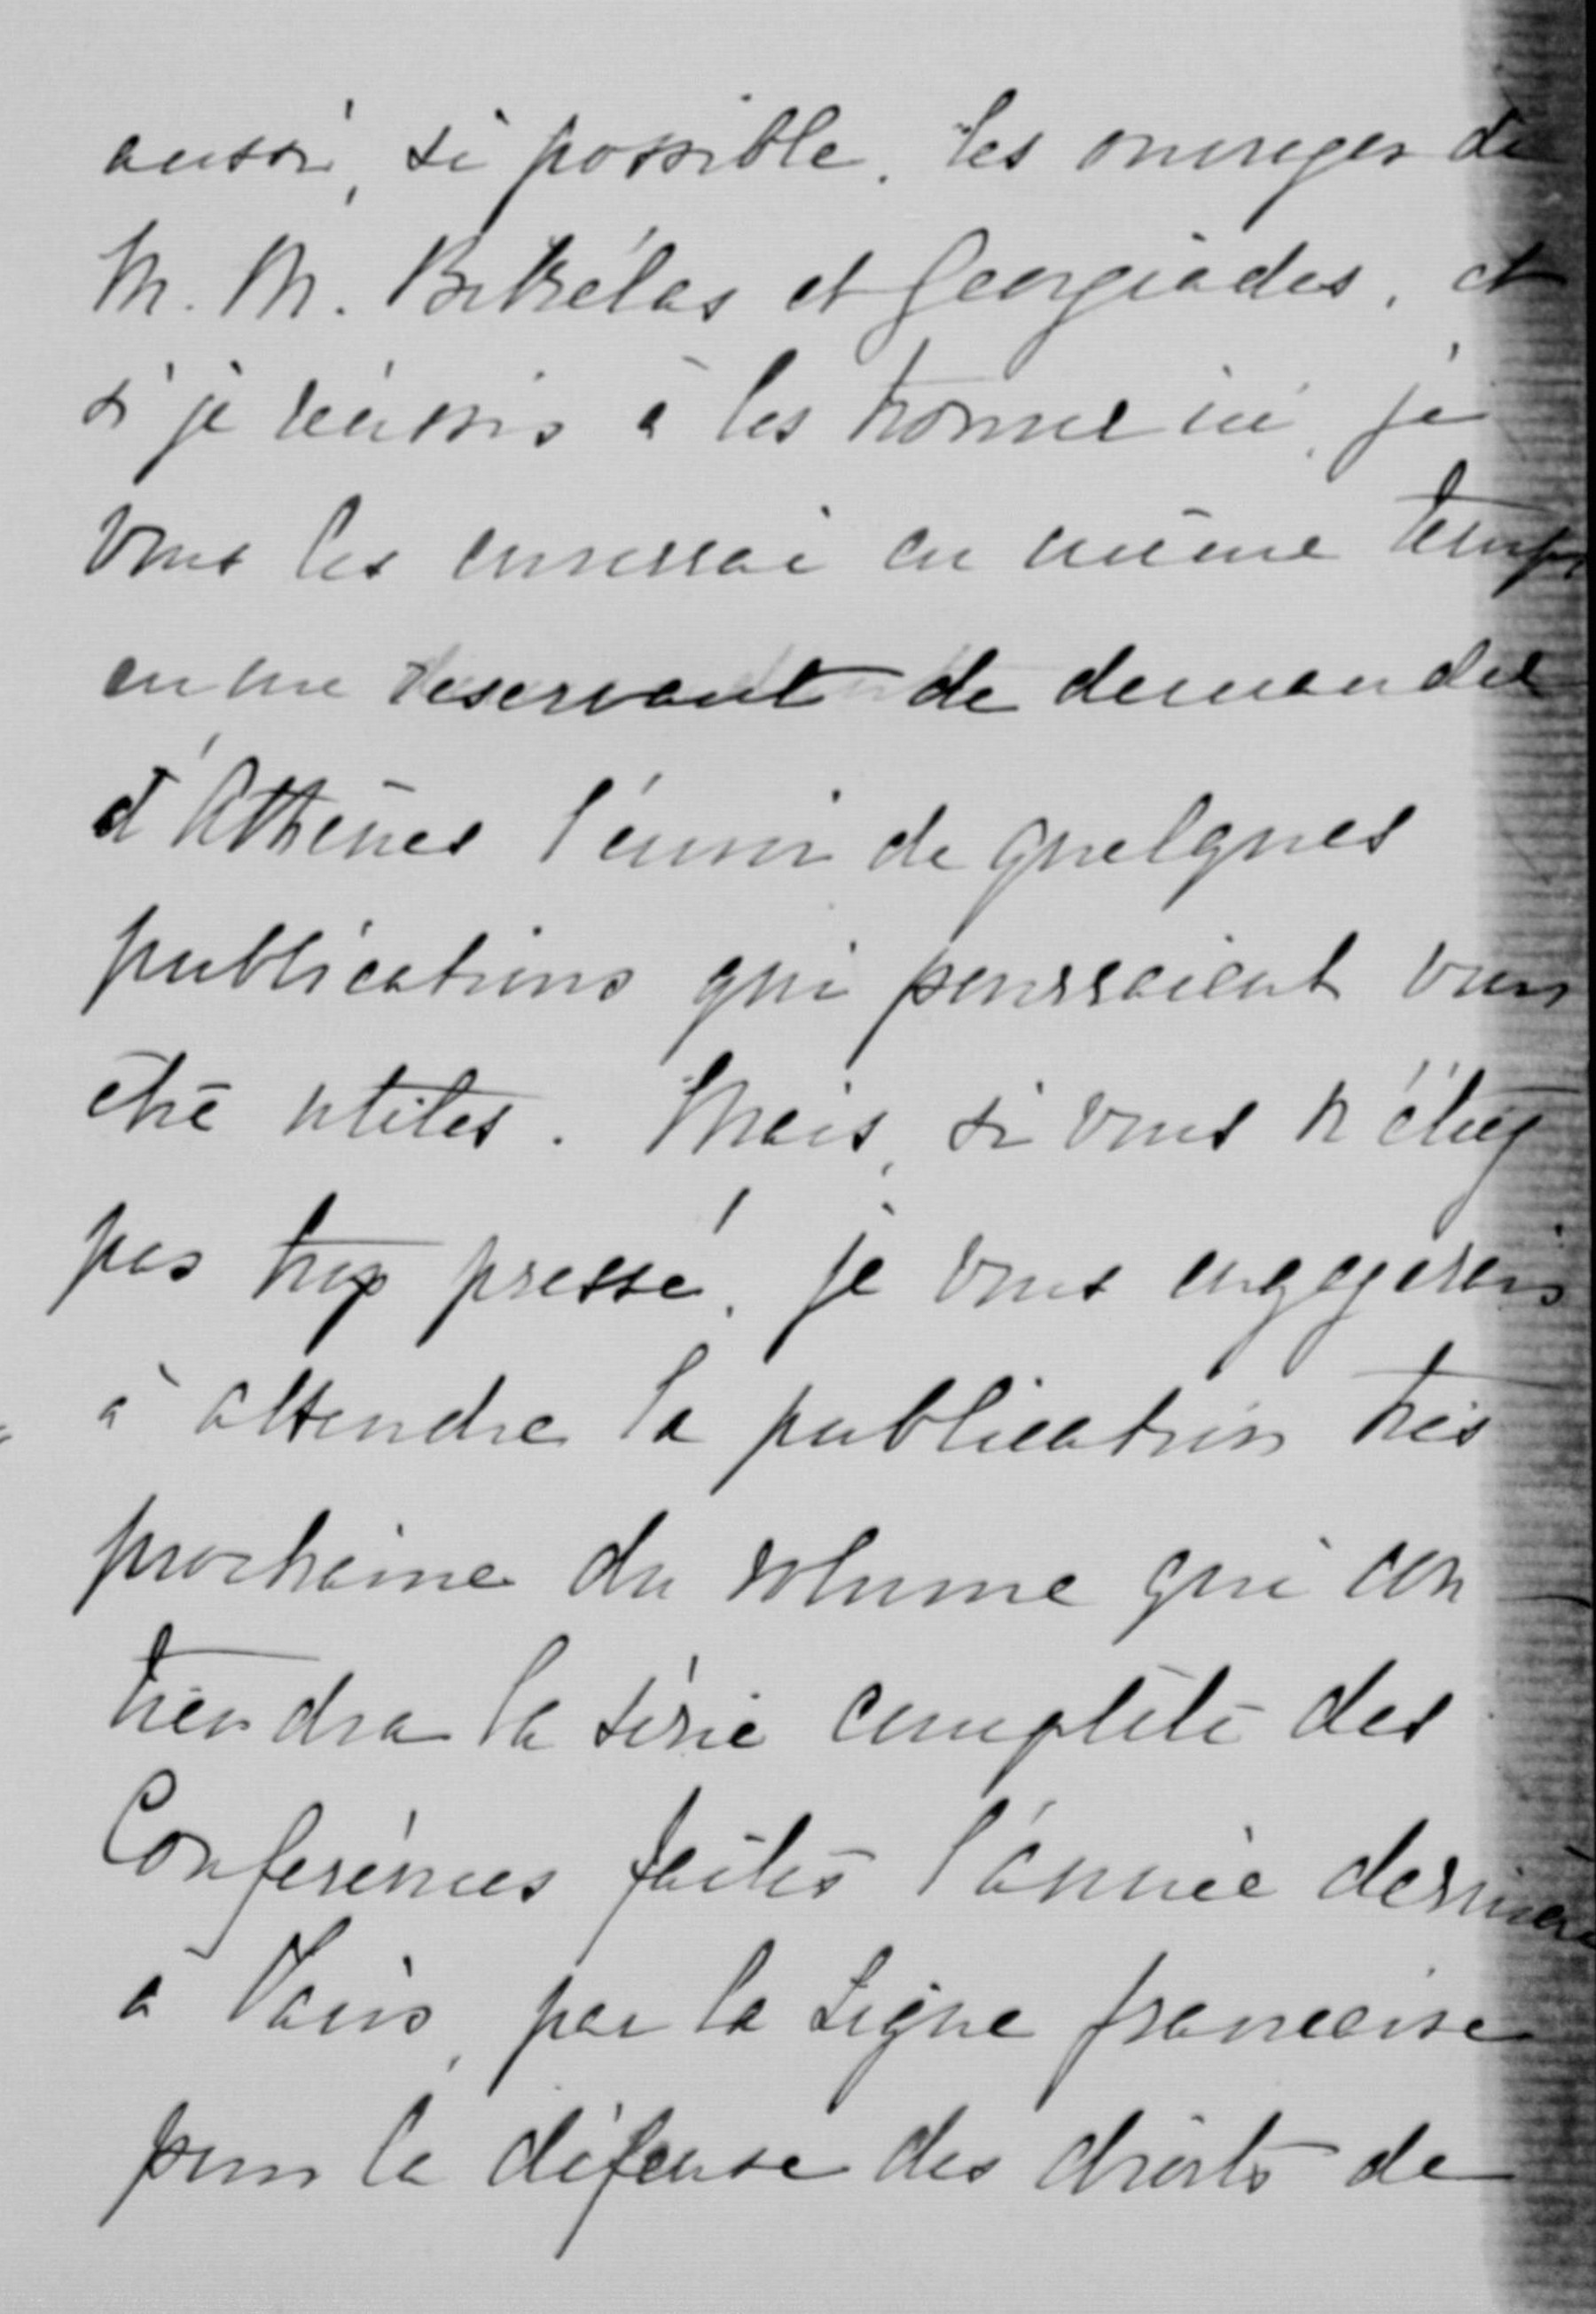 aussi, si possible, les ouvrages de
M. M. Bikélas et Georgiadès, et
si je réussis à les trouver ici, je
vous les enverrai en même temps
en me réservant de demander
d'Athènes l'envoi de quelques
publications qui pourraient vous
être utiles. Mais, si vous n'étiez
pas trop pressé, je vous engagerais
à attendre la publication très
prochaine du volume qui con
tiendra la série complète des
Conférences faites l'année dernière
à Paris, par la Ligue française
pour la défense des droits de